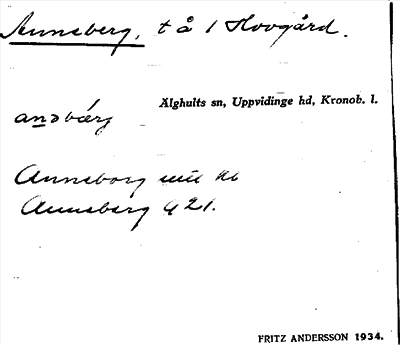 Anneberg, t å 1 Hovgård.
Älghults sn, Uppvidinge hd, Kronob. l.
anəbærg
Anneborg
Anneberg G 21.
FRITZ ANDERSSON 1934.